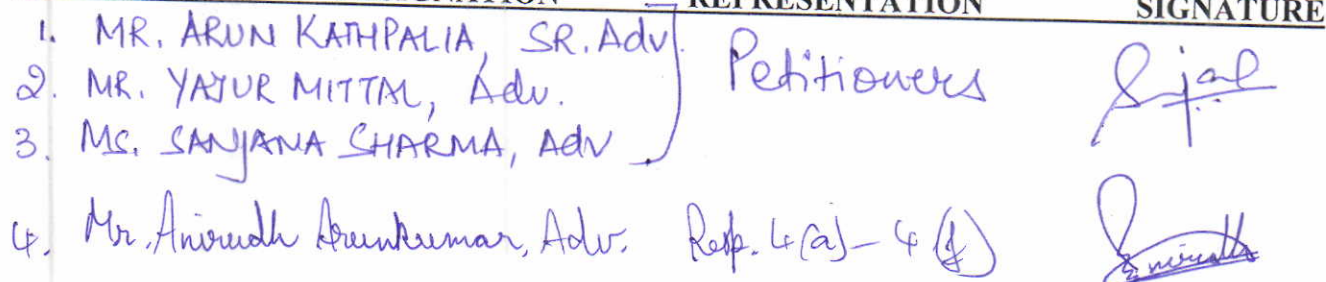 REPRESENTATION SIGNATURE
1. MR. ARUN KATHPALIA, SR. Adv. Petitioners
2. MR. YAJUR MITTAL, Adv.
3. MS. SANJANA SHARMA, Adv
4. Mr. Anirudh Arunkumar, Adv. Resp. 4(a) - 4(f)